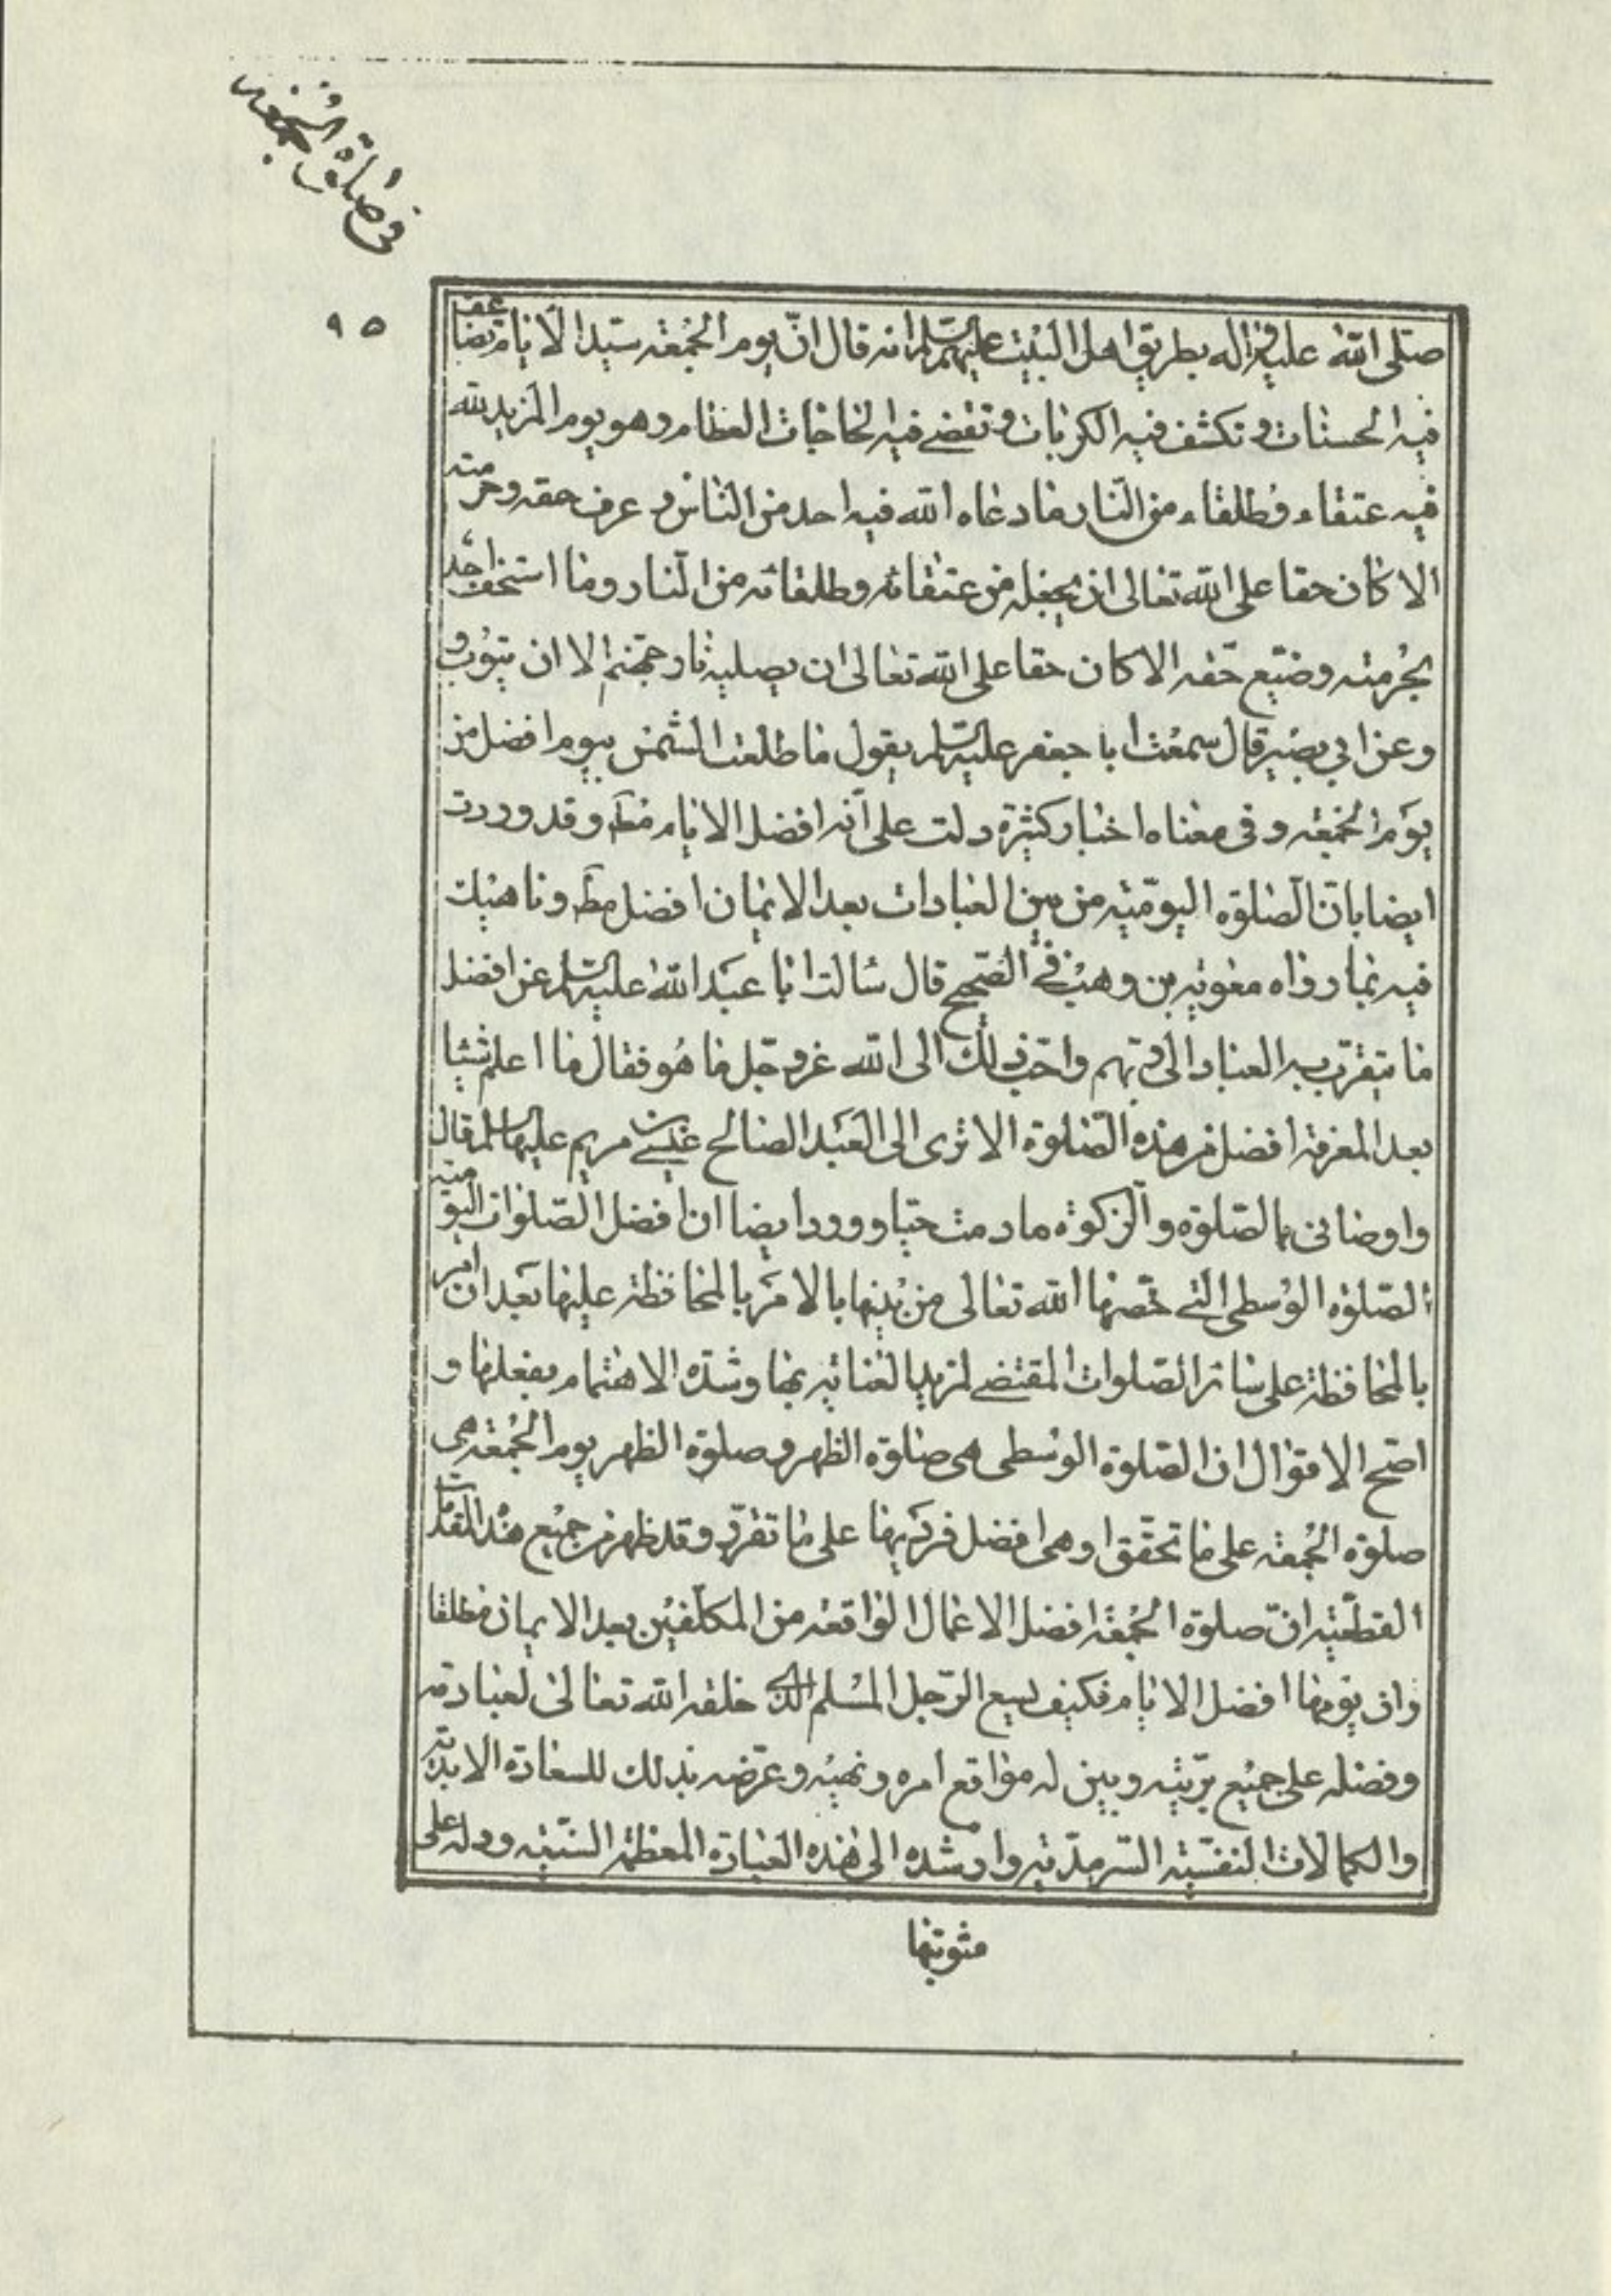 في صلوة الجمعة
٩٥
صلى الله عليه واله بطريق اهل البيت عليهم السلم انه قال ان يوم الجمعة سيد الايام تضاعف
فيه الحسنات وتكشف فيه الكربات وتقضى فيه الحاجات العظام وهو يوم المزيد لله
فيه عتقاء وطلقاء من النار ما دعاه الله فيه احد من الناس وعرف حقه وحرمته
الا كان حقا على الله تعالى ان يجعله من عتقائه وطلقائه من النار وما استخف احد
بحرمته وضيع حقه الا كان حقا على الله تعالى ان يصليه نار جهنم الا ان يتوب و
وعن ابي بصير قال سمعت ابا جعفر عليه السلم يقول ما طلعت الشمس بيوم افضل من
يوم الجمعة وفى معناه اخبار كثيرة دلت على انه افضل الايام مط وقد وردت
ايضا بان الصلوة اليومية من بين العبادات بعد الايمان افضل مط وناهيك
فيه بما رواه معوية بن وهب في الصحيح قال سالت ابا عبد الله عليه السلم عن افضل
ما يتقرب به العباد الى ربهم واحب ذلك الى الله عز وجل ما هو فقال ما اعلم شيئا
بعد المعرفة افضل من هذه الصلوة الا ترى الى العبد الصالح عيسى بن مريم عليهما السلم قال
واوصانى بالصلوة والزكوة ما دمت حيا وورد ايضا ان افضل الصلوات اليومية
الصلوة الوسطى التي خصها الله تعالى من بينها بالامر بالمحافظة عليها بعد ان امر
بالمحافظة على سائر الصلوات المقتضى لمزيد العناية بها وشدة الاهتمام بفعلها و
اصح الاقوال ان الصلوة الوسطى هى صلوة الظهر وصلوة الظهر يوم الجمعة هى
صلوة الجمعة على ما تحقق او هى افضل فرديها على ما تقرر وقد ظهر من جميع هذه المقدمات
القطعية ان صلوة الجمعة افضل الاعمال الواقعة من المكلفين بعد الايمان مطلقا
وان يومها افضل الايام فكيف يسع الرجل المسلم الذي خلقه الله تعالى لعبادته
وفضله على جميع بريته وبين له مواقع امره ونهيه وعرضه بذلك للسعادة الابدية
والكمالات النفسية السرمدية وارشده الى هذه العبادة المعظمة السنية ودله على
مثوبتها